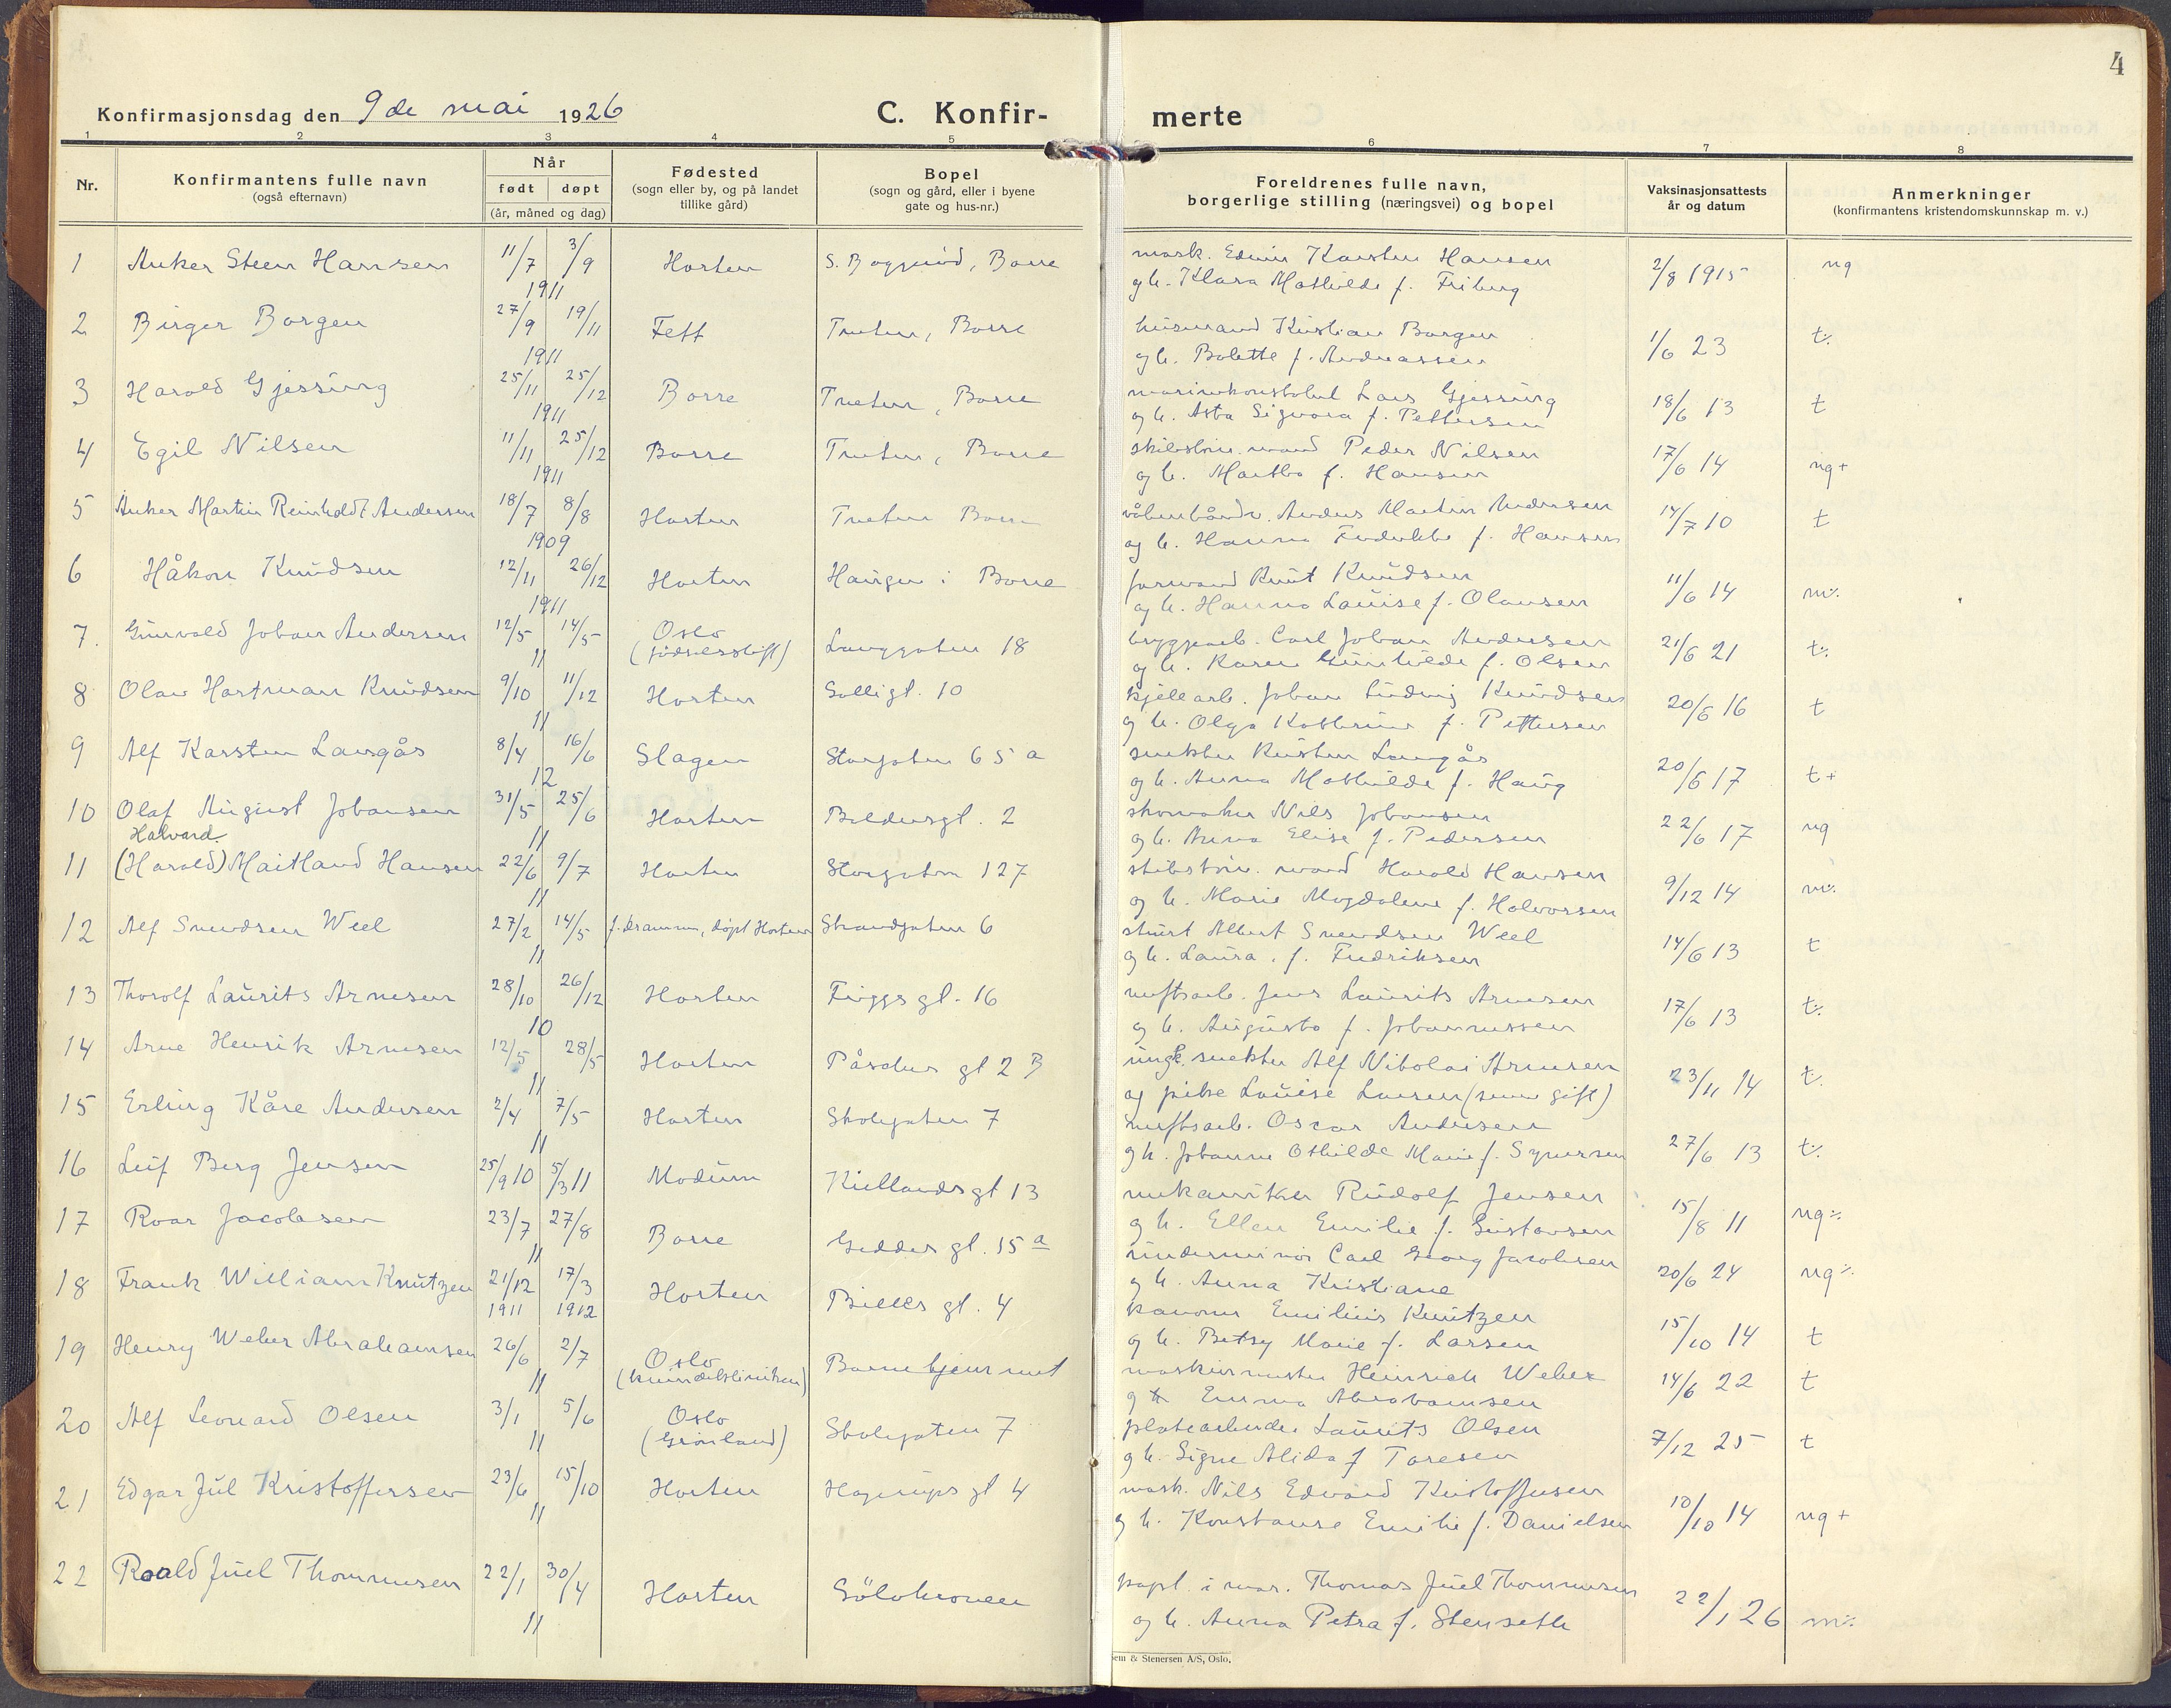 4
Konfirmasjonsdag den 9de mai 1926
C. Konfir-
merte
1 2 3 4 5 6 7 8
Nr.
Konfirmantens fulle navn
(også efternavn)
Når
født døpt
(år, måned og dag)
Fødested
(sogn eller by, og på landet
tillike gård)
Bopel
(sogn og gård, eller i byene
gate og hus-nr.)
Foreldrenes fulle navn,
borgerlige stilling (næringsvei) og bopel
Vaksinasjonsattests
år og datum
Anmerkninger
(konfirmantens kristendomskunnskap m. v.)
1 Anker Steen Hansen 11/7 3/9 1911 Horten Borre
mask. Edwin Karsten Hansen 2/8 1915 ng
og h. Klara Mathilde f. Friberg
2 Birger Borgen 27/9 19/11 1911 Fett Borre
Kristian Borgen 1/6 23 t÷
og h. Bolette f. Andreassen
3 Harald Gjessing 25/11 25/12 1911 Borre Borre
Lars Gjessing 18/6 13 t
og h. Asta Signora f. Pettersen
4 Egil Nilsen 11/11 25/12 1911 Borre Borre
Peder Nilsen 17/6 14 ng+
og h. Martha f. Hansen
5 Anker Martin Reinholdt Andersen 18/7 8/8 1909 Horten Borre
Anders Martin Andersen 14/7 10 t
og h. Hanna f. Hansen
6 Håkon Knudsen 12/11 26/12 1911 Horten Haugen i Borre
formand Knut Knudsen 11/6 14 m÷
og h. Hanna Louise f. Olausen
7. Gunvald Johan Andersen 12/5 14/5 11 Oslo Langgaten 18
(fødselsstift)
bryggearb. Carl Johan Andersen 21/6 21 t÷
og h. Karen Gunhilde f. Olsen
8 Olav Hartman Knudsen 9/10 11/12 11 Horten Solligt. 10
kjelearb. Johan Ludwig Knudsen 20/6 16 t
og h. Olga Kathrine f. Pettersen
9 Alf Karsten Langås 8/4 16/6 12 Slagen Storgaten 65 a
snekker Kristen Langås 20/6 17 t+
og h. Anna Mathilde f. Haug
10 Olaf August Johansen 31/5 25/6 11 Horten Baldersgt. 2
skomaker Nils Johansen 22/6 17 ng
og h. Anna Elise f. Pedersen
Halvard
11 (Harald) Maitland Hansen 22/6 9/7 11 Horten Storgaten 127
Harald Hansen 9/12 14 m÷
og h. Marie Magdalene f. Halvorsen
12 Alf Svendsen Weel 27/2 14/5 11 f. Drammen, døpt Horten Strandgaten 6
Albert Svendsen Weel 14/6 13 t
og h. Laura, f. Fredriksen
13 Thorolf Laurits Arnesen 28/10 26/12 10 Horten Friggs gt. 16
verftsarb. Jens Laurits Arnesen 17/6 13 t÷
og h. Augusta f. Johannessen
14 Arne Henrik Arnesen 12/5 28/5 11 Horten gt 2 B
ungk. snekker Alf Nikolai Arnesen 23/11 14 t.
og pike Louise Larsen (senere gift)
15 Erling Kåre Andersen 2/4 7/5 11 Horten Skolegaten 7
verftsarb. Oscar Andersen 27/6 13 t÷
og h. Johanne Othilde Marie f. Syversen
16 Leif Berg Jensen 25/9 10 5/3 11 Modum Kiellandsgt 13
mekaniker Rudolf Jensen 15/8 11 ng÷
og h. Ellen Emilie f. Gustavsen
17 Roar Jacobsen 23/7 27/8 11 Borre Geddes gt. 15 a
underminør Carl Georg Jacobsen 20/6 24 ng÷
og h. Anna Kristiane
18 Frank William Knutzen 21/12 1911 17/3 1912 Horten Billes gt. 4
kanoner Emilius Knutzen 15/10 14 t
og h. Betsy Marie f. Larsen
19 Henry Weber Abrahamsen 26/6 2/7 11 Oslo Barnehjemmet
(kvindeklinikken)
maskinmester Heinrich Weber 14/6 22 t
og Emma Abrahamsen
20 Alf Leonard Olsen 3/1 5/6 11 Oslo Skolegaten 7
(Grønland)
platearbeider Laurits Olsen 7/12 25 t
og h. Signe Alida f Toresen
21 Edgar Jul Kristoffersen 23/6 15/10 11 Horten Hagerups gt 4
mask. Nils Edvard Kristoffersen 10/10 14 ng+
og h. Konstanse Emilie f. Danielsen
22 Roald Juel Thommesen 22/1 30/4 11 Horten
kapt. i mar. Thomas Juel Thommesen 22/1 26 m÷
og h. Anna Petra f. Stenseth
& Stenersen A/S, Oslo.